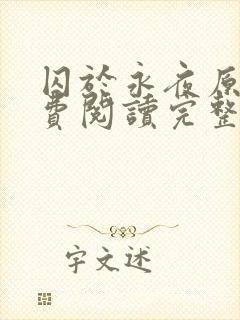 囚於永夜原
費閱讀完整
宇文述